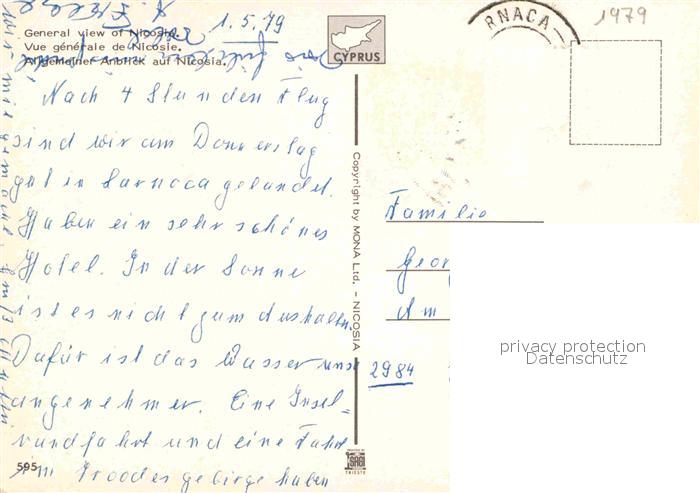 1.5.79
General view of Nicosia.
Vue générale de Nicosie.
Allgemeiner Anblick auf Nicosia.
Nach 4 Stunden Flug
sind wir am Donnerstag
gut in Larnaca gelandet.
Haben ein sehr schönes
Hotel. In der Sonne
ist es nicht zum aushalten.
Dafür ist das Wasser umso
angenehmer. Eine Insel-
rundfahrt und eine Fahrt
Troodos gebirge haben
595
CYPRUS
Copyright by MONA Ltd. - NICOSIA
SAGI
TRIESTE
RNACA
1979
Familie
Geor
Am
2984
privacy protection
Datenschutz